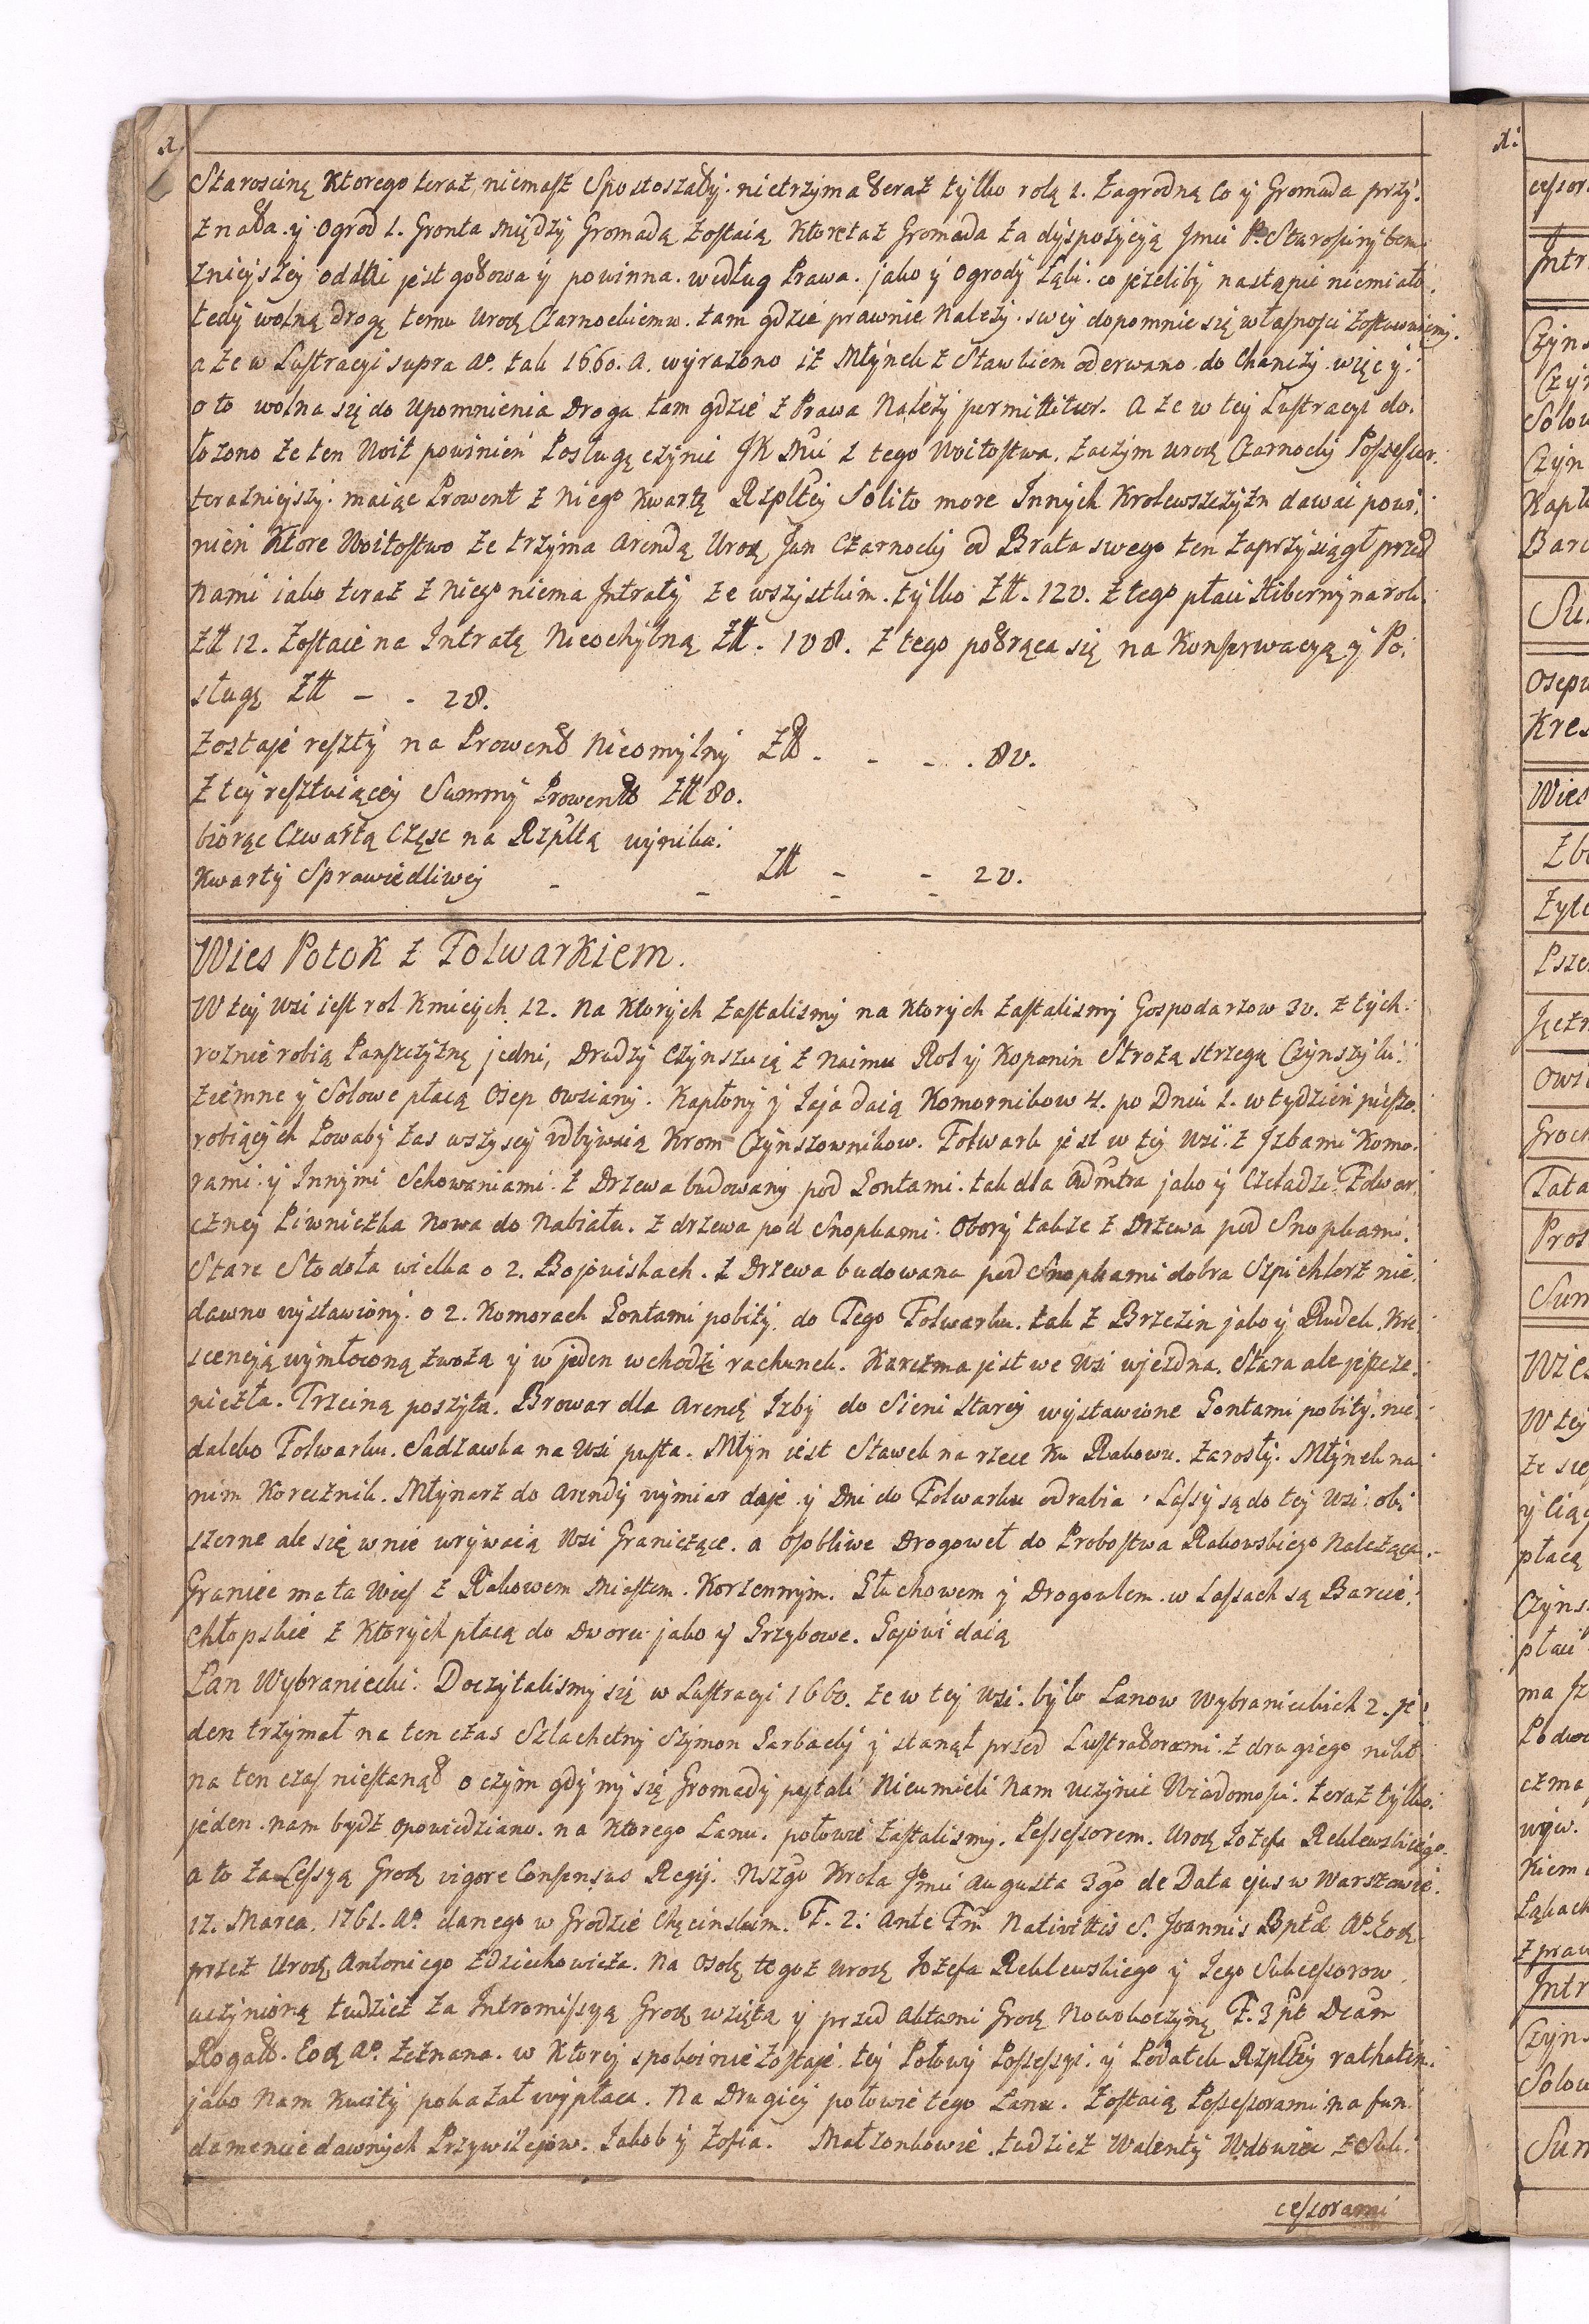 Staroscinę Ktorego teraz, niemasz Spostoszały. nietrzyma teraz tylko rolą 1. Zagrodną Co y Gromada przy:
znała. y Ogrod 1. Gronta między Gromadą zostaią Ktoretaz Gromada za dyspozycyą Jmci P. Starosciny tera
znieyszey oddac jest gotowa y powinna. według Prawa. jako y Ogrody Łąki. co jezeliby nastąpic niemiało.
tedy wolną drogę temu Urodz Czarnockiemu. tam gdzie prawnie Nalezy. swey dopomnic się własnosci zostawuiemy.
a ze w Lustracyi supra Ao. tak 1660. A. wyrazono iz Młynek z Stawkiem oderwano do Chanczy. więc y:
o to wolna się do Upomnienia Droga tam gdzie z Prawa Nalezy permittitur. A ze w tey Lustracyi do.
łozono ze ten Woit powinien Posługę czynic JK Mci z tego Woitostwa. zaczym urodz Czarnocky Possessor.
terazniejszy. maiąc Prowent z niego Kwartę Rzpltey Solito more Innych Krolewszczyzn dawac powi:
nien Ktore Woitostwo ze trzyma Arendą Urodz Jan Czarnocky od Brata swego ten zaprzysiągł przed
nami iako teraz z niego niema Jntraty ze wszystkim. tylko Złł. 120. z tego płaci Hiberny na rok.
Złł 12. Zostaie na Intratę Nieochybną Złł. 108. z tego potrąca się na Konserwacyą y Po:
sługę Złł - . 28.
Zostaje reszty na Prowent Nieomylny Złł. - - . 80.
Z tey resztuiącey Summy Prowentu Złł 80.
biorąc Czwartą Częsc na Rzpltą wynika:
Kwarty Sprawiedliwey - - Złł - - 20.
Wies Potok z Folwarkiem.
W tey wsi iest rol Kmiecych 12. na Ktorych zastalismy na Ktorych zastalismy Gospodarzow 30. z tych:
roznie robią Panszczyznę jedni, Drudzy Czynszuią z Naimu Rol y Kopanin Strozą strzegą Czynszyki:
ziemne y Solowe płacą Osep Owsiany. Kapłony y Jaja daią Komornikow 4. po Dniu 1. w tydzień pieszo.
robiących Powaby zas wszyscy odbywaią Krom Czynszownikow. Folwark jest w tey Wsi. z Jzbami Komo.
rami. y Innymi Schowaniami. z Drzewa budowany pod Gontami. tak dla Admtra jako y Czeladzi Folwar.
czney Piwniczka Nowa do Nabiału. z drzewa pod Snopkami. Obory takze z Drzewa pod Snopkami.
Stare Stodoła wielka o 2. Bojowiskach. z Drzewa budowana pod Snopkami dobra Szpichlerz nie.
dawno wystawiony. o 2. Komorach Gontami pobity. do Tego Folwarku. tak z Brzezin jako y Rudek. Kre:
scencyą wymłoconą zwozą y w jeden wchodzi rachunek. Karczma jest we Wsi wjezdna. Stara ale jeszcze.
niezła. Trzciną poszyta. Browar dla Arendz Izby do Sieni Starey wystawione Gontami pobity. nie.
daleko Folwarku. Sadzawka na Wsi pusta. Młyn iest Stawek na rzece Ku Rakowu. zarosły. Młynek na
nim Korecznik. Młynarz do Arendy wymiar daje y Dni do Folwarku odrabia. Lassy są do tey Wsi obi
szerne ale się w nie wrywaią Wsi Graniczące. a Osobliwe Drogoweł do Probostwa Rakowskiego Należąca.
Granice ma ta Wies z Rakowem Miastem. Korzennym. Głuchowem y Drogoulem. w Lassach są Barcie.
Chłopskie z Ktorych płacą do Dworu jako y Grzybowe. Gajowi daią
Lan Wybraniecki. Doczytalismy się w Lustracyi 1660. ze w tey Wsi. było Lanow Wybranieckich 2. je:
den trzymał na ten czas Szlachetny Szymon Garbacky y stanął przed Lustratorami. z drugiego nikt
na ten czas niestanął o czym gdy my się Gromady pytali Nieumieli Nam uczynic Wiadomosci. teraz tylko:
jeden. nam bydz opowiedziano. na Ktorego Lanu. połowie zastalismy. Possessorem. Urodz Jozefa Reklewskiego.
a to za Cessyą Grodz vigore Consensus Regij. Nszgo Krola Jmci Augusta 3go de Data ejus w Warszawie.
17. Marca. 1761. Ao. danego w Grodzie Chęcinskim. F. 2: Ante Fm Nativittis S. Joannis Bptæ Ao. Eodz
przez Urodz Antoniego Zdziechowicza. na Osobę tegoz urodz Jozefa Reklewskiego y Jego Sukcessorow.
uczynioną tudziez za Intromissyą Grodz wziętą y przed Aktami Grodz Nowokoczynz F. 3 pt Dcam
Rogatt. Eodz Ao. zeznana. w Ktorey spokoinie zostaje tey Połowy Possessyi. y Podatek Rzpltey rathatim.
jako Nam Kwity pokazał wypłaca. Na Drugiey połowie tego Łanu. Zostaią Possessorami na fun
damencie dawnych Przywilejow. Jakob y Zofia. Małzonkowie tudziez Walenty Wdowiec z Suk:
cessorami